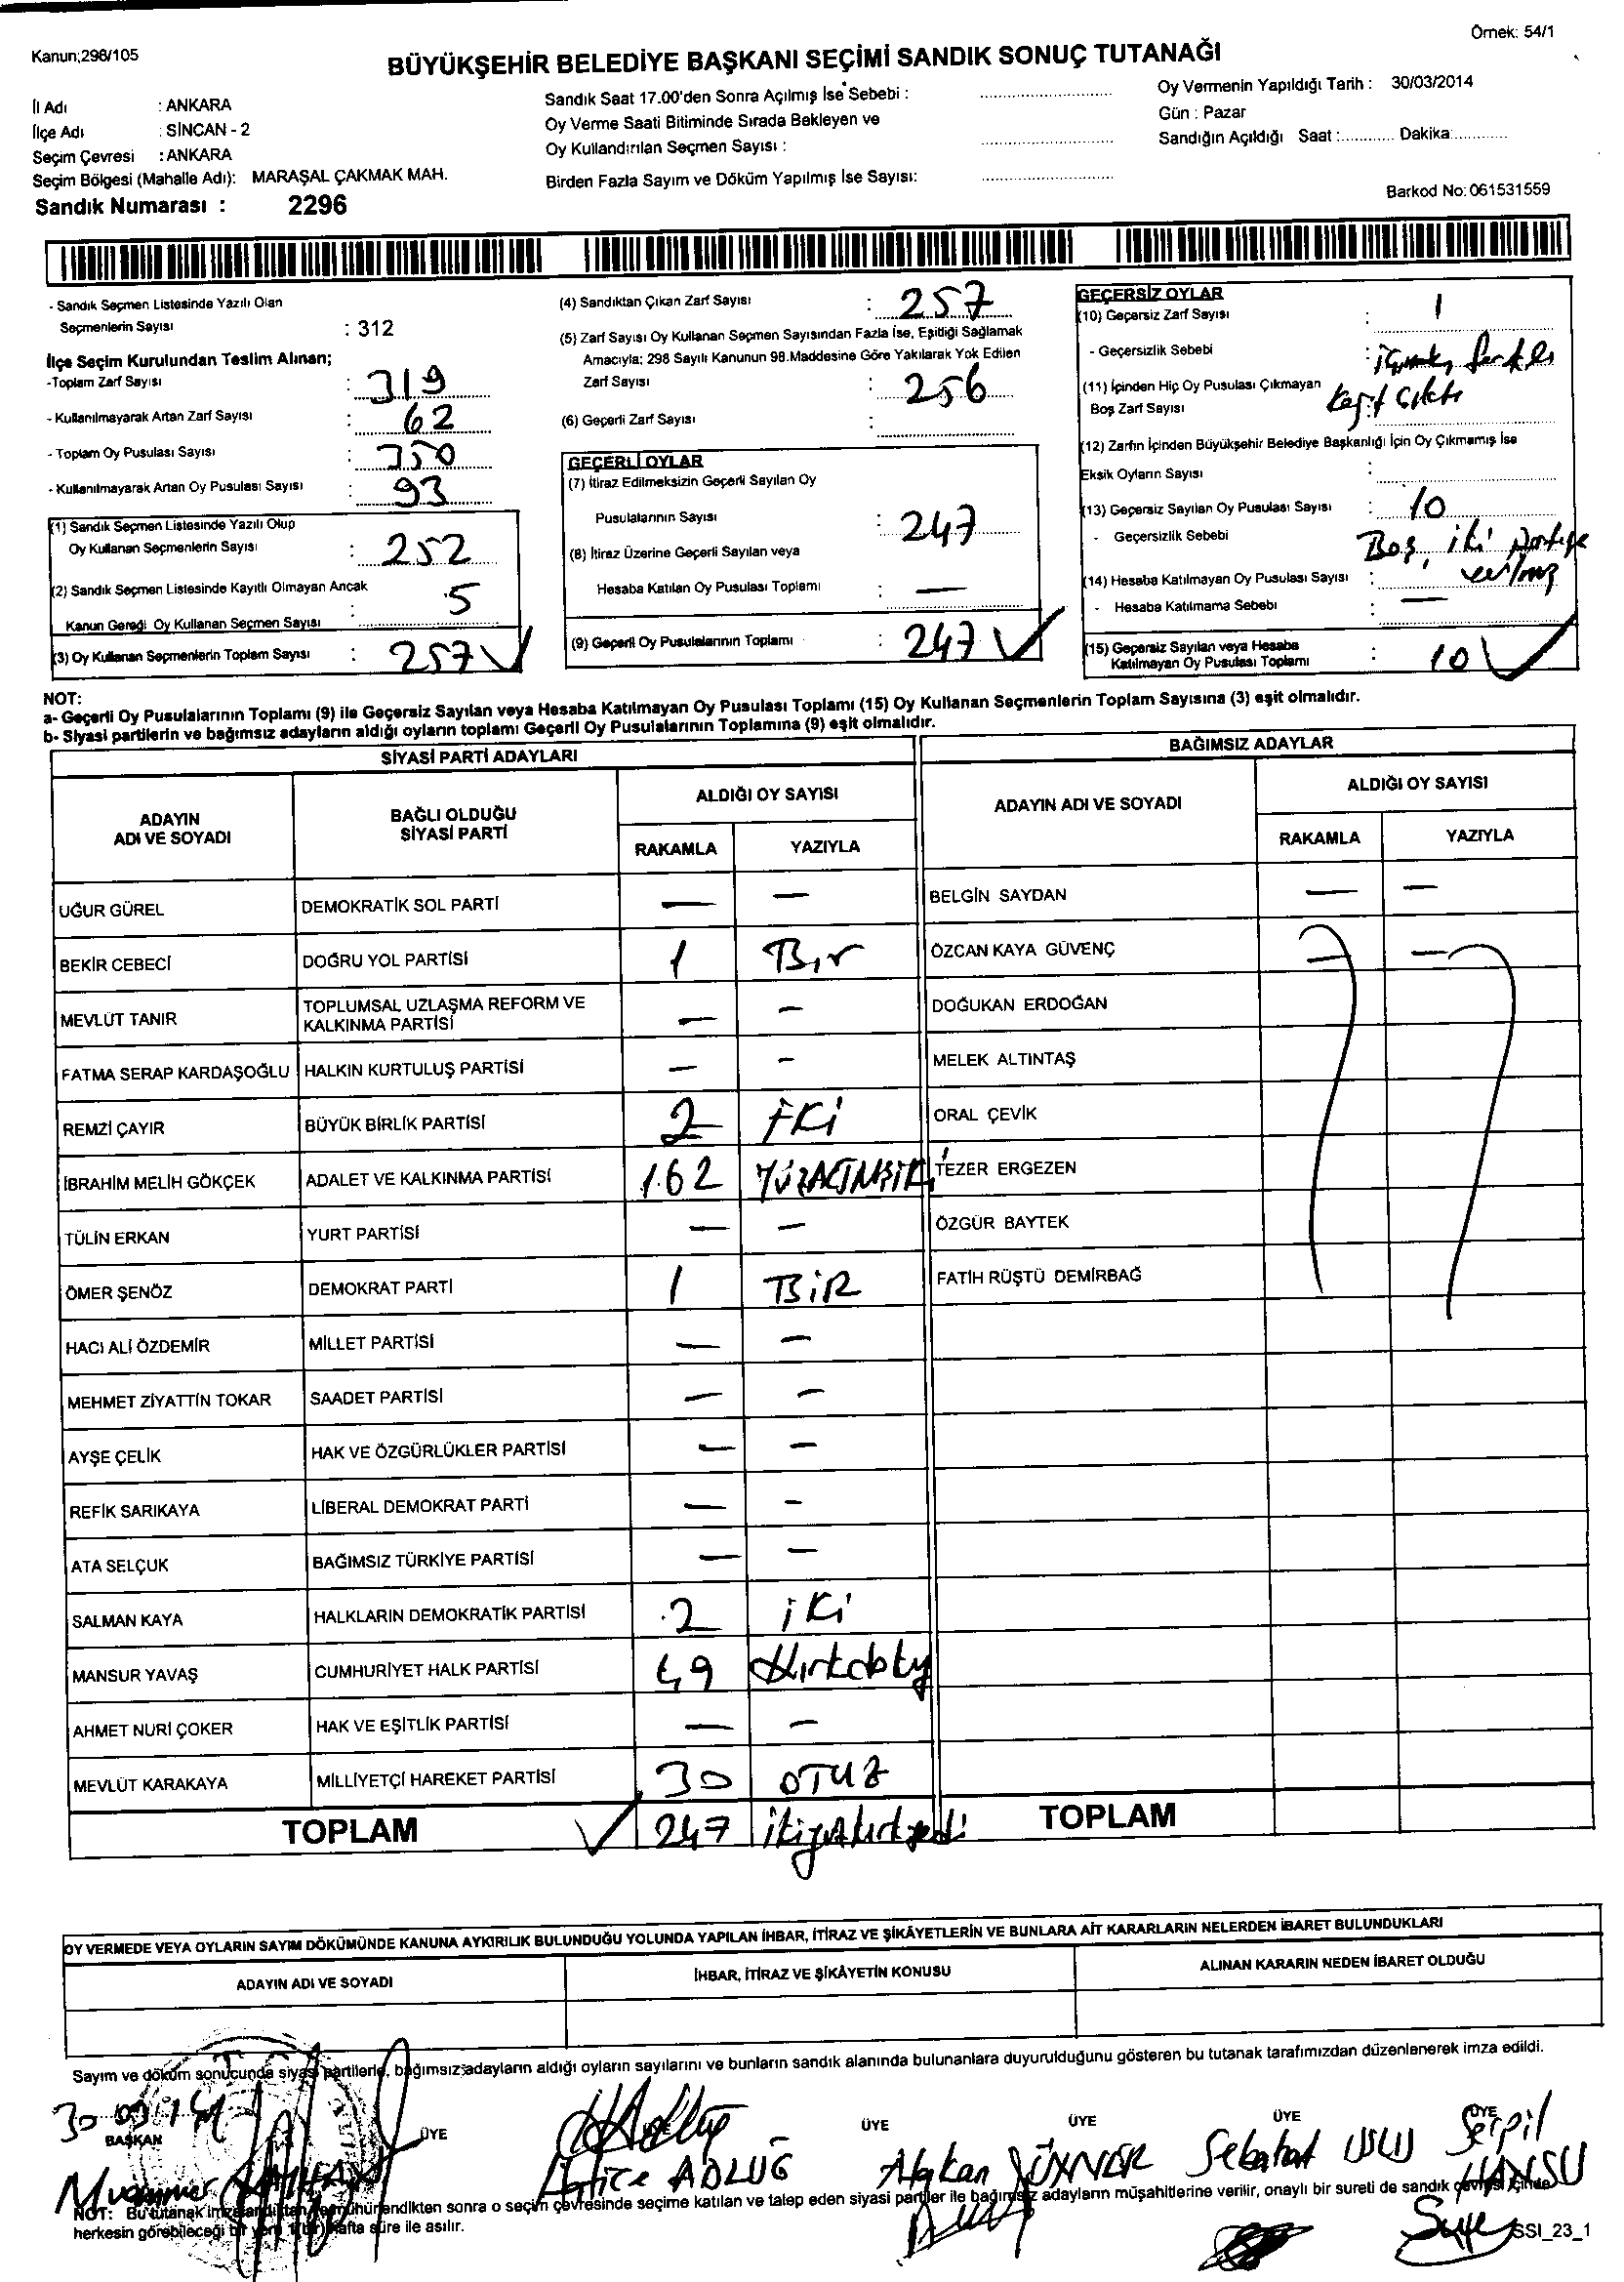 Örnek: 54/1
Kanun;298/105
BÜYÜKŞEHİR BELEDİYE BAŞKANI SEÇİMİ SANDIK SONUÇ TUTANAĞI
İl Adı : ANKARA
İlçe Adı : SİNCAN - 2
Seçim Çevresi : ANKARA
Seçim Bölgesi (Mahalle Adı): MARAŞAL ÇAKMAK MAH.
Sandık Numarası : 2296
Sandık Saat 17.00'den Sonra Açılmış İse Sebebi :
Oy Verme Saati Bitiminde Sırada Bekleyen ve
Oy Kullandırılan Seçmen Sayısı :
Birden Fazla Sayım ve Döküm Yapılmış İse Sayısı:
Oy Vermenin Yapıldığı Tarih : 30/03/2014
Gün : Pazar
Sandığın Açıldığı Saat :............ Dakika:............
Barkod No: 061531559
- Sandık Seçmen Listesinde Yazılı Olan
Seçmenlerin Sayısı : 312
İlçe Seçim Kurulundan Teslim Alınan;
-Toplam Zarf Sayısı : 319
- Kullanılmayarak Artan Zarf Sayısı : 62
- Toplam Oy Pusulası Sayısı : 350
- Kullanılmayarak Artan Oy Pusulası Sayısı : 93
(1) Sandık Seçmen Listesinde Yazılı Olup
Oy Kullanan Seçmenlerin Sayısı : 252
(2) Sandık Seçmen Listesinde Kayıtlı Olmayan Ancak
Kanun Gereği Oy Kullanan Seçmen Sayısı : 5
(3) Oy Kullanan Seçmenlerin Toplam Sayısı : 257
(4) Sandıktan Çıkan Zarf Sayısı : 257
(5) Zarf Sayısı Oy Kullanan Seçmen Sayısından Fazla İse, Eşitliği Sağlamak
Amacıyla; 298 Sayılı Kanunun 98.Maddesine Göre Yakılarak Yok Edilen
Zarf Sayısı : 256
(6) Geçerli Zarf Sayısı :
GEÇERLİ OYLAR
(7) İtiraz Edilmeksizin Geçerli Sayılan Oy
Pusulalarının Sayısı : 247
(8) İtiraz Üzerine Geçerli Sayılan veya
Hesaba Katılan Oy Pusulası Toplamı : —
(9) Geçerli Oy Pusulalarının Toplamı : 247
GEÇERSİZ OYLAR
(10) Geçersiz Zarf Sayısı : 1
- Geçersizlik Sebebi : farklı
(11) İçinden Hiç Oy Pusulası Çıkmayan
Boş Zarf Sayısı
(12) Zarfın İçinden Büyükşehir Belediye Başkanlığı İçin Oy Çıkmamış İse
Eksik Oyların Sayısı :
(13) Geçersiz Sayılan Oy Pusulası Sayısı : 10
- Geçersizlik Sebebi Boş, iki partiye
(14) Hesaba Katılmayan Oy Pusulası Sayısı :
- Hesaba Katılmama Sebebi : —
(15) Geçersiz Sayılan veya Hesaba
Katılmayan Oy Pusulası Toplamı : 10
NOT:
a- Geçerli Oy Pusulalarının Toplamı (9) ile Geçersiz Sayılan veya Hesaba Katılmayan Oy Pusulası Toplamı (15) Oy Kullanan Seçmenlerin Toplam Sayısına (3) eşit olmalıdır.
b- Siyasi partilerin ve bağımsız adayların aldığı oyların toplamı Geçerli Oy Pusulalarının Toplamına (9) eşit olmalıdır.
SİYASİ PARTİ ADAYLARI
ADAYIN ADI VE SOYADI BAĞLI OLDUĞU SİYASİ PARTİ ALDIĞI OY SAYISI
RAKAMLA YAZIYLA
UĞUR GÜREL DEMOKRATİK SOL PARTİ — —
BEKİR CEBECİ DOĞRU YOL PARTİSİ 1 Bir
MEVLÜT TANIR TOPLUMSAL UZLAŞMA REFORM VE KALKINMA PARTİSİ — —
FATMA SERAP KARDAŞOĞLU HALKIN KURTULUŞ PARTİSİ — —
REMZİ ÇAYIR BÜYÜK BİRLİK PARTİSİ 2 İKİ
İBRAHİM MELİH GÖKÇEK ADALET VE KALKINMA PARTİSİ 162 YÜZALTMIŞİKİ
TÜLİN ERKAN YURT PARTİSİ — —
ÖMER ŞENÖZ DEMOKRAT PARTİ 1 BİR
HACI ALİ ÖZDEMİR MİLLET PARTİSİ — —
MEHMET ZİYATTİN TOKAR SAADET PARTİSİ — —
AYŞE ÇELİK HAK VE ÖZGÜRLÜKLER PARTİSİ — —
REFİK SARIKAYA LİBERAL DEMOKRAT PARTİ — —
ATA SELÇUK BAĞIMSIZ TÜRKİYE PARTİSİ — —
SALMAN KAYA HALKLARIN DEMOKRATİK PARTİSİ 2 iKi
MANSUR YAVAŞ CUMHURİYET HALK PARTİSİ 49
AHMET NURİ ÇOKER HAK VE EŞİTLİK PARTİSİ — —
MEVLÜT KARAKAYA MİLLİYETÇİ HAREKET PARTİSİ 30 OTUZ
TOPLAM 247
BAĞIMSIZ ADAYLAR
ADAYIN ADI VE SOYADI ALDIĞI OY SAYISI
RAKAMLA YAZIYLA
BELGİN SAYDAN — —
ÖZCAN KAYA GÜVENÇ — —
DOĞUKAN ERDOĞAN
MELEK ALTINTAŞ
ORAL ÇEVİK
TEZER ERGEZEN
ÖZGÜR BAYTEK
FATİH RÜŞTÜ DEMİRBAĞ
TOPLAM
OY VERMEDE VEYA OYLARIN SAYIM DÖKÜMÜNDE KANUNA AYKIRILIK BULUNDUĞU YOLUNDA YAPILAN İHBAR, İTİRAZ VE ŞİKÂYETLERİN VE BUNLARA AİT KARARLARIN NELERDEN İBARET BULUNDUKLARI
ADAYIN ADI VE SOYADI İHBAR, İTİRAZ VE ŞİKÂYETİN KONUSU ALINAN KARARIN NEDEN İBARET OLDUĞU
Sayım ve döküm sonucunda siyasi partilerle, bağımsız adayların aldığı oyların sayılarını ve bunların sandık alanında bulunanlara duyurulduğunu gösteren bu tutanak tarafımızdan düzenlenerek imza edildi.
30 03/14
BAŞKAN ÜYE ÜYE ÜYE ÜYE ÜYE
Muammer Hatice ADLUĞ Atakan Sebahat USLU Serpil
NOT: Bu tutanak imzalandıktan ve mühürlendikten sonra o seçim çevresinde seçime katılan ve talep eden siyasi partiler ile bağımsız adayların müşahitlerine verilir, onaylı bir sureti de sandık çevresi içinde
herkesin görebileceği bir yere 1 (bir) hafta süre ile asılır.
SSI_23_1